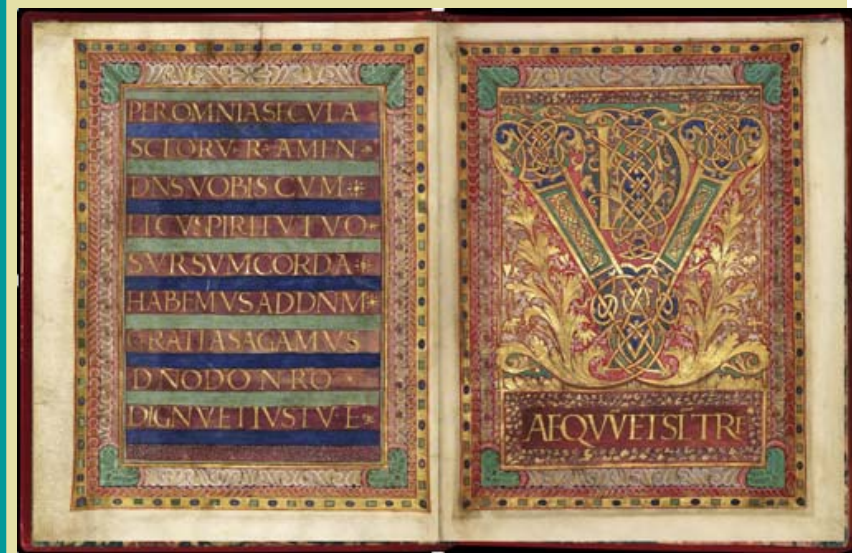 PER OMNIA SECVLA
SCLORV· R· AMEN
DNS VOBIS CVM
ET CV SPIRITV TVO
SVRSVM CORDA
HABEMVS AD DNM
GRATIAS AGAMVS
DNO DO NRO
DIGNV ET IVSTV E
VD
AEQVV ET SLTRE